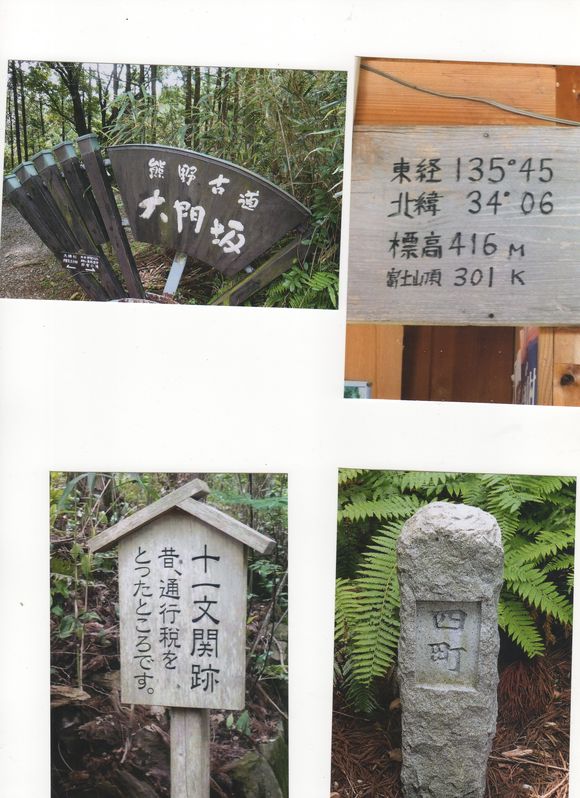 熊野古道
大門坂
東経135°45
北緯 34°06
標高416M
富士山頂301K
十一文関跡
昔、通行税を
とったところです。
四町